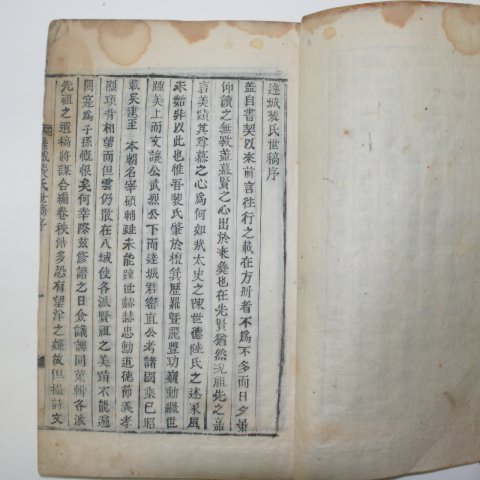 達城裴氏世稿序
盖自書契以來前言徃行之載在方冊者不爲不多而日夕彙
仰讀之無斁盖慕賢之心出於秉彜也在先賢猶然況祖先之嘉
言美蹟其尊慕之心爲何如哉太史之陳世德陸氏之述家風
未始非以此也惟吾裴氏肇於檀箕歷羅曁麗豊功巍勳繼世
踵美上而文讓公武烈公下而達城君密直公考諸國乘已昭
載矣逮至 本朝名宰碩輔雖未能踵世赫赫忠勳道德節義孝
烈項背相望而但雲仍散在八域使各派賢祖之美蹟不能遍
閱寔爲子孫慨恨矣何幸際玆修譜之日僉議詢同蒐輯各派
先祖之遺稿將謀合編卷秩浩多恐有望洋之難故但撮詩文
達城裴氏世稿序